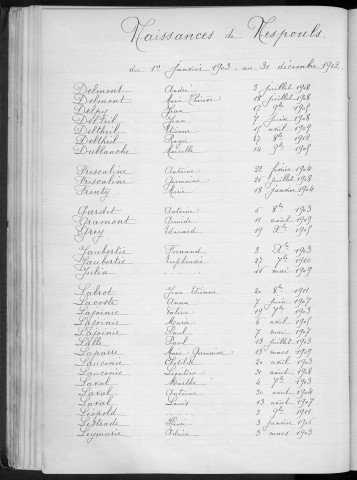 Naissances de Nespouls.
du 1er Janvier 1903 au 31 décembre 1912.
Delmont André 3 juillet 1908
Delmont Marie Thérèse 18 juillet 1908
Delpy Jean 17 9bre
Delteil Jean 7 juin 1908
Deltheil Etienne 15 avril 1909
Deltheil Roger 27 8bre 1912
Dublanche Marcelle 14 9bre
Frescaline Antoine 22 février 1904
Frescaline Germaine 25 juillet 1908
Fronty Marie 18 janvier 1904
Gardet Antoine 8bre 1903
Gramont 11 août 1909
Grey Edouard 19 Xbre
Jaubertie Fernand 3 Xbre 1903
Jaubertie Euphrasie 27 7bre 1910
Julia 16 mai 1909
Labrot Jean Etienne 20 8bre 1911
Lacoste Anna 7 juin 1907
Lajoinie 19 7bre 1903
Lajoinie Marie 6 avril
Lajoinie Paul 7 mai 1907
Lalle Paul 13 juillet 1903
Laparre Marie Germaine 13 mars 1909
Lauconie Clotilde 20 avril 1903
Lauconie Léontine 31 août 1908
Laval Marthe 4 7bre 1903
Laval Antoine 30 août 1904
Laval Louis 13 août 1907
Léopold 3 9bre 1911
Lestrade Henri 3 janvier
Leymarie Edma 3 mars 1903